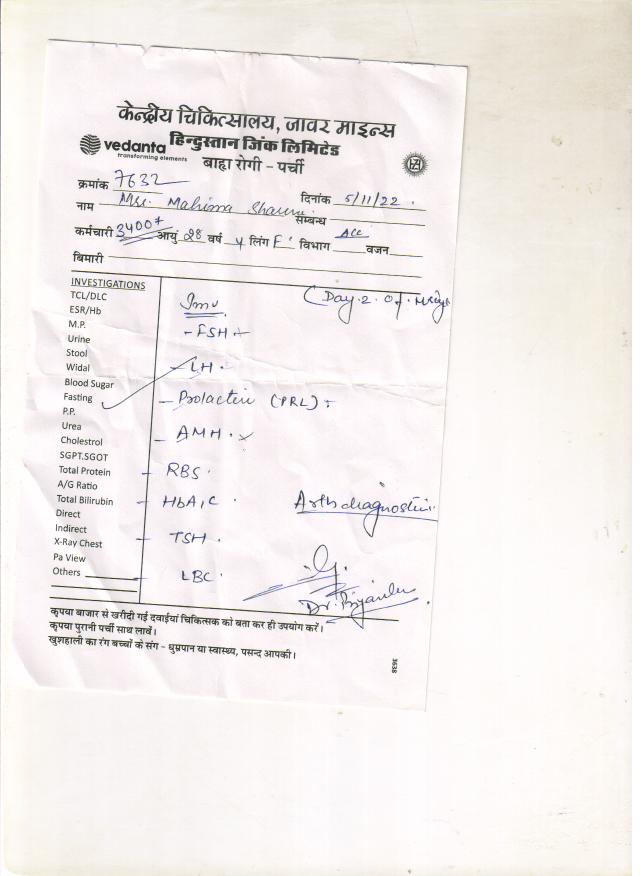 केन्द्रीय चिकित्सालय, जावर माइन्स
vedanta हिन्दुस्तान जिंक लिमिटेड
transforming elements
बाह्य रोगी - पर्ची
क्रमांक 7632
दिनांक 5/11/22
नाम Mrs. Mahima सम्बन्ध
कर्मचारी 34007 आयु 28 वर्ष y लिंग F विभाग Acc वजन
बिमारी
INVESTIGATIONS
TCL/DLC
ESR/Hb
M.P.
Urine
Stool
Widal
Blood Sugar
Fasting
P.P.
Urea
Cholestrol
SGPT.SGOT
Total Protein
A/G Ratio
Total Bilirubin
Direct
Indirect
X-Ray Chest
Pa View
Others
(Day 2 of
- FSH
- LH
- Prolactin (PRL)
- AMH
- RBS
- HbA1C
- TSH
- LBC
Arth diagnostic
Dr.
कृपया बाजार से खरीदी गई दवाईयां चिकित्सक को बता कर ही उपयोग करें।
कृपया पुरानी पर्ची साथ लावें।
खुशहाली का रंग बच्चों के संग - धुम्रपान या स्वास्थ्य, पसन्द आपकी।
3638